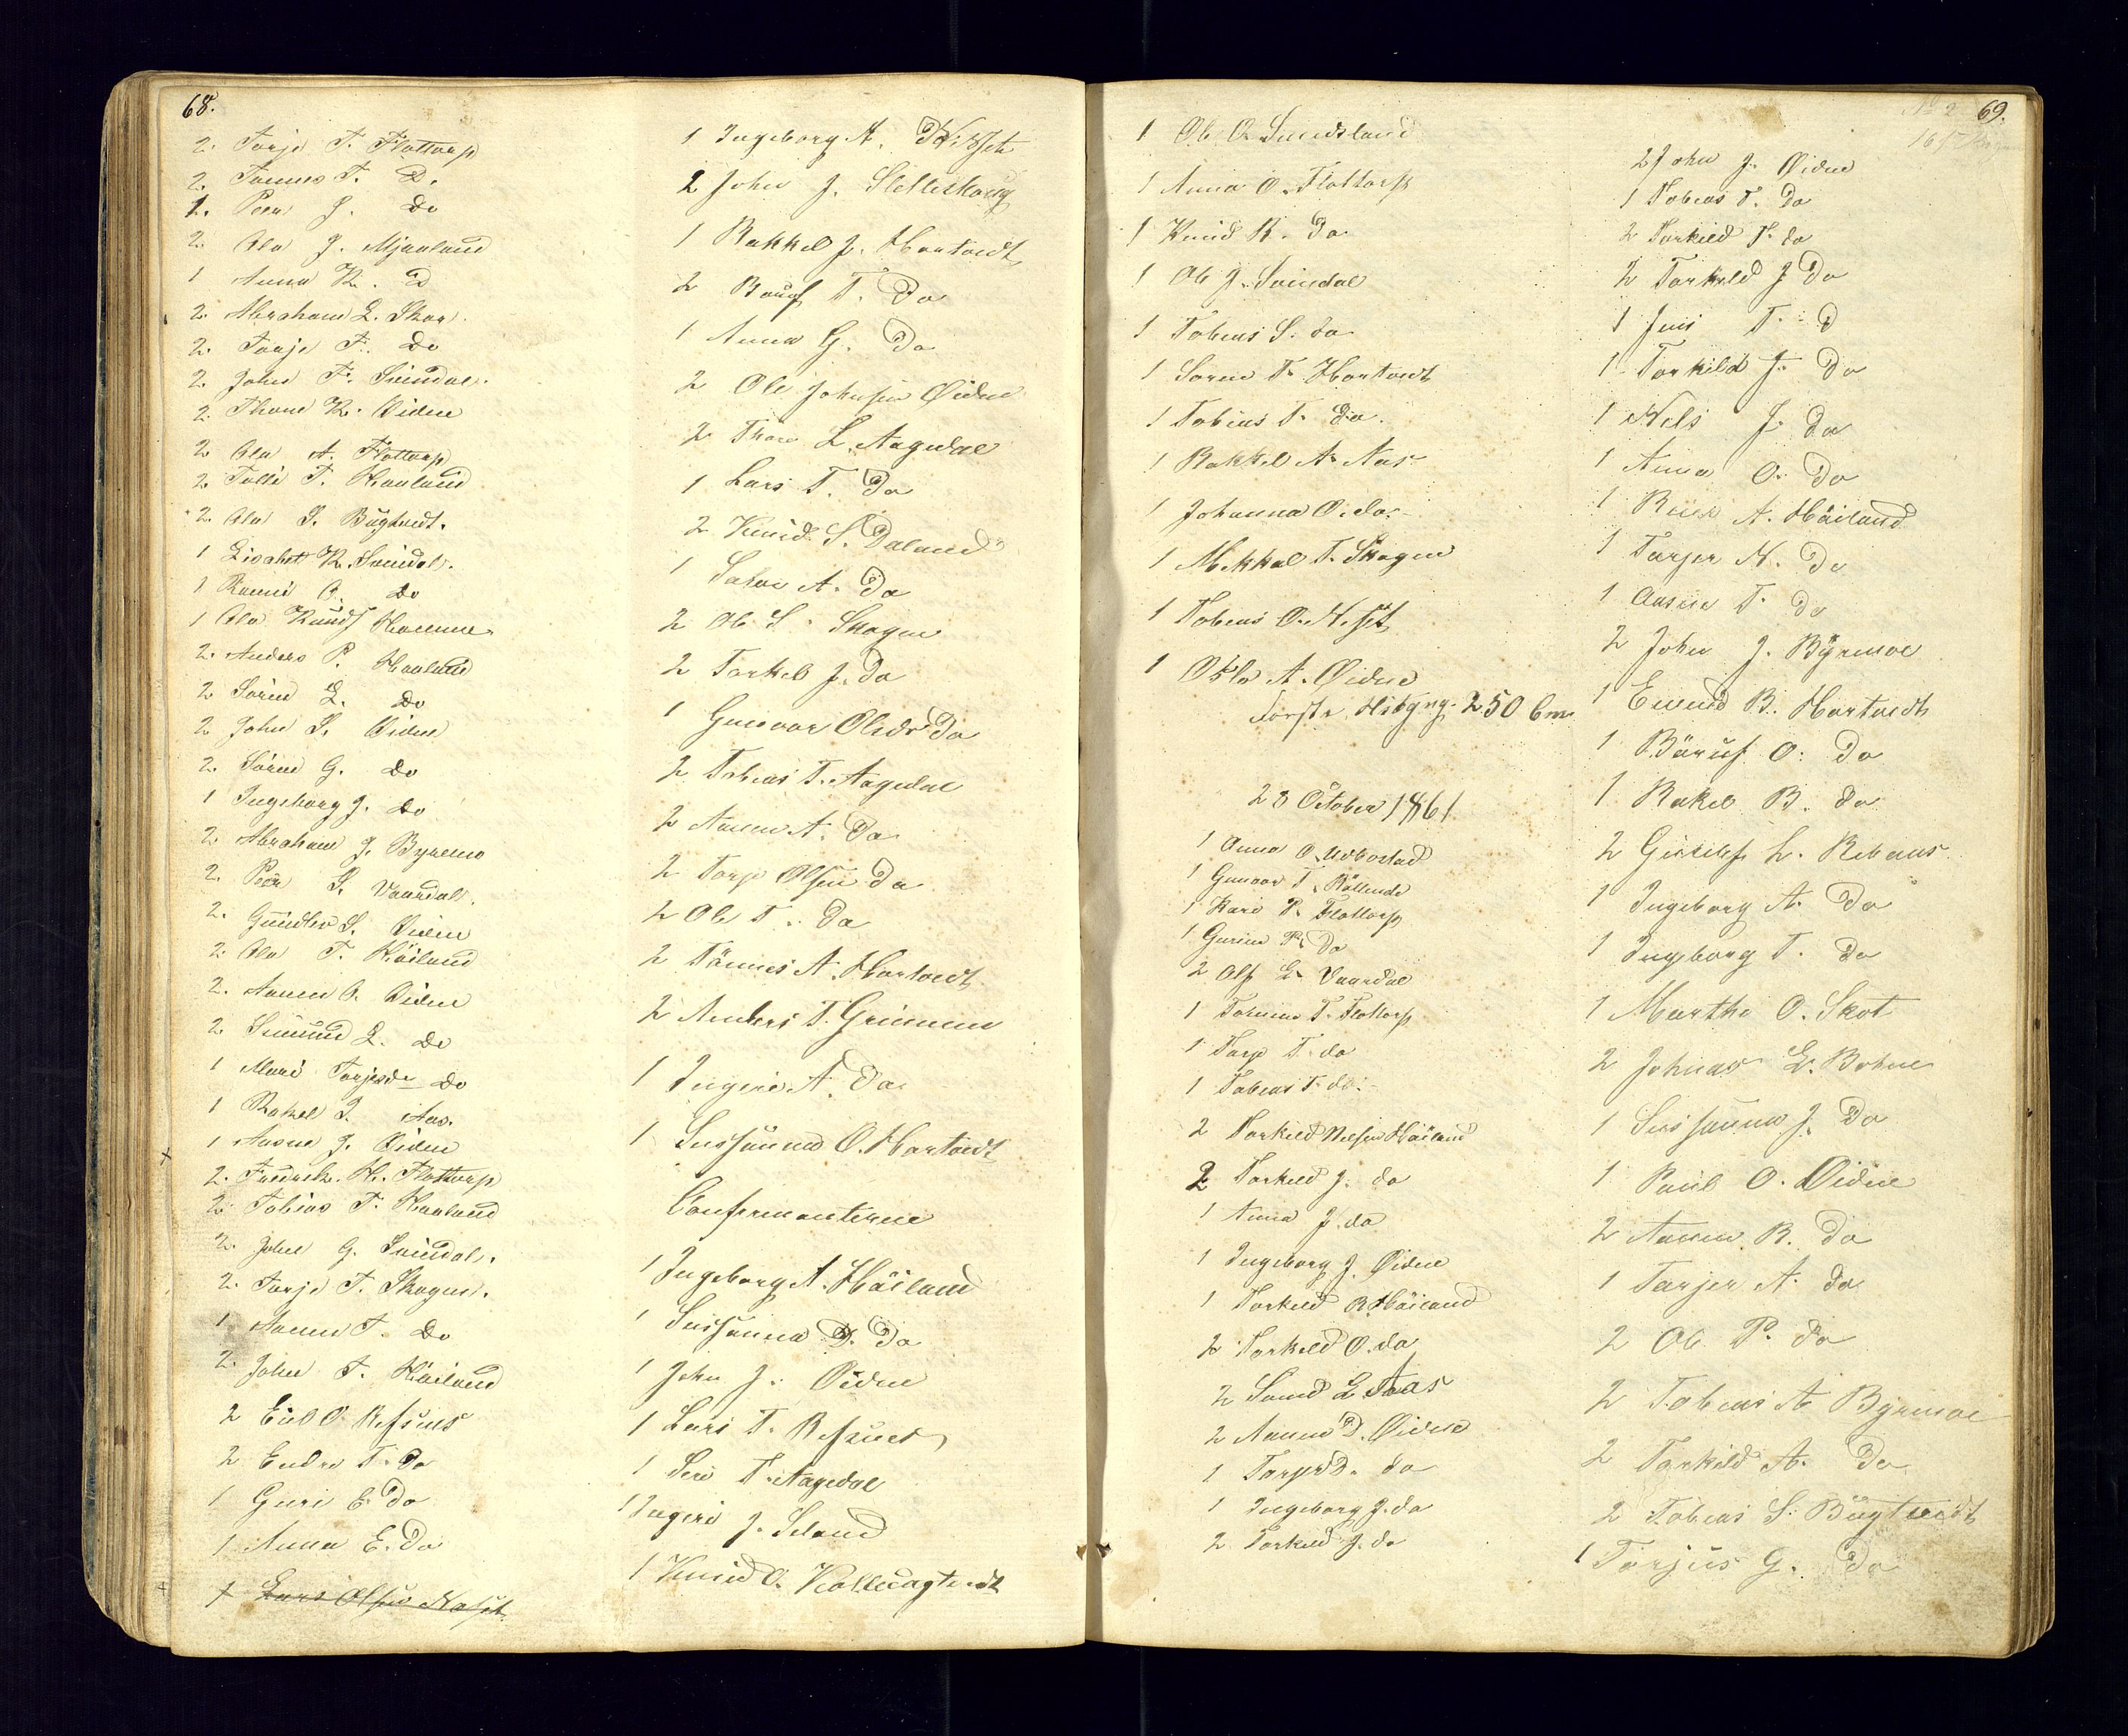 68.
2. Tarje T. Flottorp
2. Tønnes T. D.
1. Peer J. Do
2. Ola J. Mjaaland
1 Anna K. D
2. Abraham L. Skar.
2. Taaje T. Do
2. John T. Svindal.
2. Thore K. Øidne
2 Ola A. Flottorp
2. Tolli T. Haaland
2. Ola S. Bügtvedt.
1 Lisabett K. Svindal.
1 Ranni O. Do
1 Ola Knuds Homme
2. Anders P. Haaland
2 Sørend L. Do
2 John S. Øidne
2. Sörne G. Do
1 Ingeborg J. Do
2. Abraham J. Byremo
2. Peer S. Vaardal.
2. Gundlev S. Øidne
2. Ola T. Häiland
2. Aanen O. Øidne
2. Simund L. Do
1 Mari Tarjesdr Do
1 Rakel L. Aas.
1 Aasne J. Øidne
2. Fredrik. H. Flottorp
2. Tobias T. Haaland
2. John G. Svindal.
2. Tarje T. Skagen.
1. Aanen T. Do
2. John T. Häiland
2 Eiel O. Refsnes
2 Endre T. Do
1 Guri E. Do
1 Anna E. Do
1 Lars Olsen Nøset
1 Ingeborg A.
2 John J. Sletteskoug
1 Rakkel J. Hortvedt
2 T. Do
1 Anna G. Do
2 Ole Johnsen Øidne
2 Thore L. Aagedal
1 Lars T. Do
2 Knud S. Daland
1 Salve A. Do
2 Ole S. Skagen
2 Torkel J. Do
1 Gunvor Olsdr Do
2 Tobias T. Aagedal
2 Aanen A. Do
2 Tarje Olsen Do
2 Ole T. Do
2 Tönnes A. Hortvedt
2 Anders T. Grimmen
1 Ingeri A. Do
1 Sussanna O. Hortvedt
Confirmanterne
1 Ingeborg A. Häiland
1 Sussanna D. Do
1 John J. Øidne
1 Lars T. Refsnes
1 Seri T. Aagedal
1 Ingeri J. Seland
1 Knud O.
1 Ole O. Sundsland
1 Anna O. Flottorp
1 Knud K. do
1 Ole J. Svindal
1 Tobias S. do
1 Søren T. Hortvedt
1 Tobias T. do.
1 Rakkel A. Aas
1 Johanna O. do.
1 Mikkal T. Skagen
1 Tobias O. Neset
1 Osla A. Øidne
250
28 October 1861
1 Anna O. Ubostad
1 Gunvor T.
1 Kari P. Flottorp
1 Gurine P. Do
2 Ole E. Vaardal
1 Tomine T. Flottorp
1 Tarje T. do
1 Tobias T. do.
2 Torkild Nelsen Häiland
2 Torkild J. do
1 Anna J. do
1 Ingeborg J. Øidne
1 Torkild R. Häiland
2 Torkild O. do
2 L. Aas
2 Aanen D. Øidne
1 Tarje D. do
1 Ingeborg J. do
2 Torkild J. do
69.
2 John J. Øidne
1 Tobias T. Do
2 Torkild T. do
2 Torkild J Do
1 Jens T. D
1 Torkild J. Do
1 Nels J. Do
1 Anna O. Do
1 Reier A. Häiland
1 Tarjer N. Do
1 Aasne T. Do
2 John J. Byremoe
1 Eivind B. Hortvedt
1 O. Do
1 Rakel B. Do
2 L.
1 Ingeborg A. Do
1 Ingeborg T. Do
1 Marthe O. Skot
2 Johnas E. Bohne
1 Sussanna J. Do
1 Paul O. Øidne
2 Aanen B. Do
1 Tarjer A. Do
2 Ole P. Do
2 Tobias A Byremoe
2 Torkild A. Do
2 Tobias S. Bügtvedt
1 Tarjus G. Do